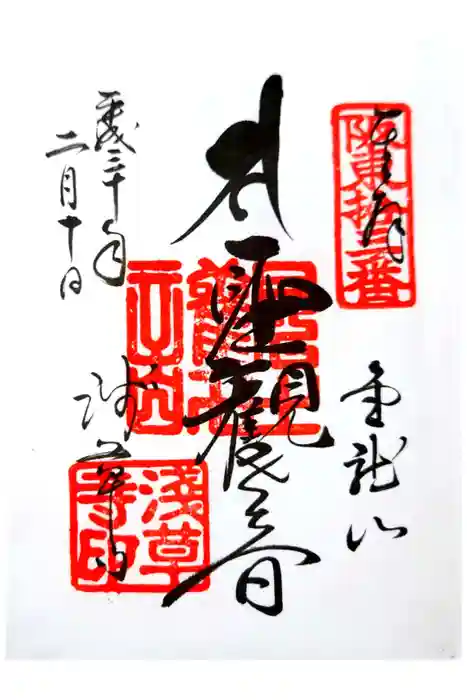 奉拝
阪東拾三番
金龍山
聖觀世音
平成三十年
二月十日
浅草寺
淺草
寺印